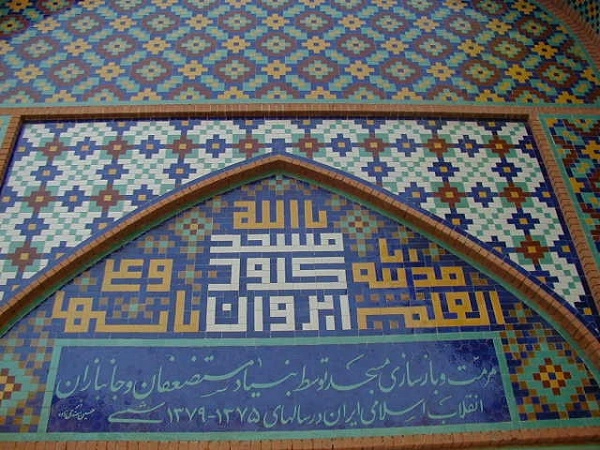 یا الله
مسجد
کبود
ایروان
انا مدینة
العلم
وعلی
بابها
مرمت و بازسازی مسجد توسط بنیاد مستضعفان و جانبازان
انقلاب اسلامی ایران در سالهای ۱۳۷۵-۱۳۷۹ شمسی